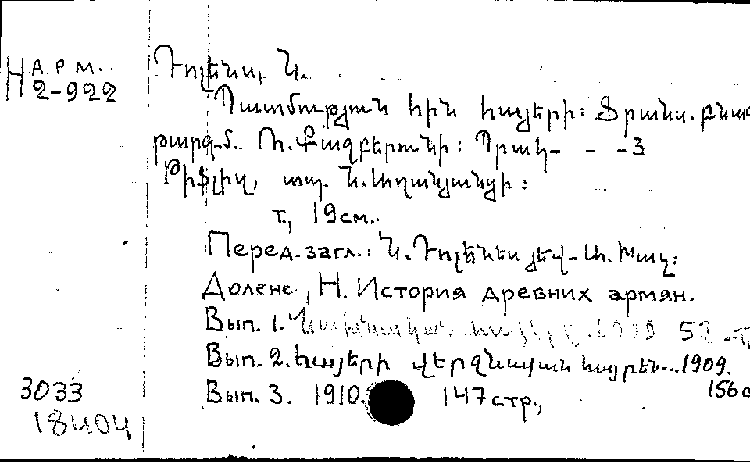 Н АРМ. 2-922
Դոլենս, Ն.
Պատմության հին հայերի: Ֆրանս. բնագ
թարգմ. Ռ. Քաջբերունի: Պրակ- - -3
Թիֆլիզ, տպ. Ն. Աղանյանցի:
т., 19 см.
Перед. загл.: Ն. Դոլենս յեվ-Ա. Խաչ:
Доленс, Н. История древних армян.
Вып. 1. 1909 52
Вып. 2. հայերի վերջնական հայրեն...1909. 156 с
Вып. 3. 1910. 147 стр.,
3033
18404